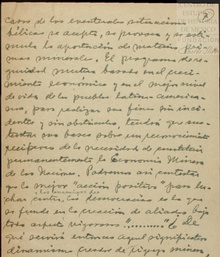 caso de los eventuales situaciones
bélicas se acepta, se provoca y se esti-
mula la aportación de materias pri-
mas minerales. El programa de se-
guridad mutua basado en el creci-
miento económico y en el mejor nivel
de vida de los pueblos latino america-
nos, para realizar sus fines sin inci-
dentes y sin obstáculos tendrá que sus-
tentar sus bases sobre un reconocimiento
recíproco de la necesidad de estabilizar
permanentemente la Economía Minera
de las Naciones. Podremos así contestar
que la mejor "acción positiva" para lu-
char contra las democracias es la que
se funde en la creación de aliados bajo
tres aspectos vigorosos
que servirá entonces aquel significativo
dinamismo creador de riqueza minera,